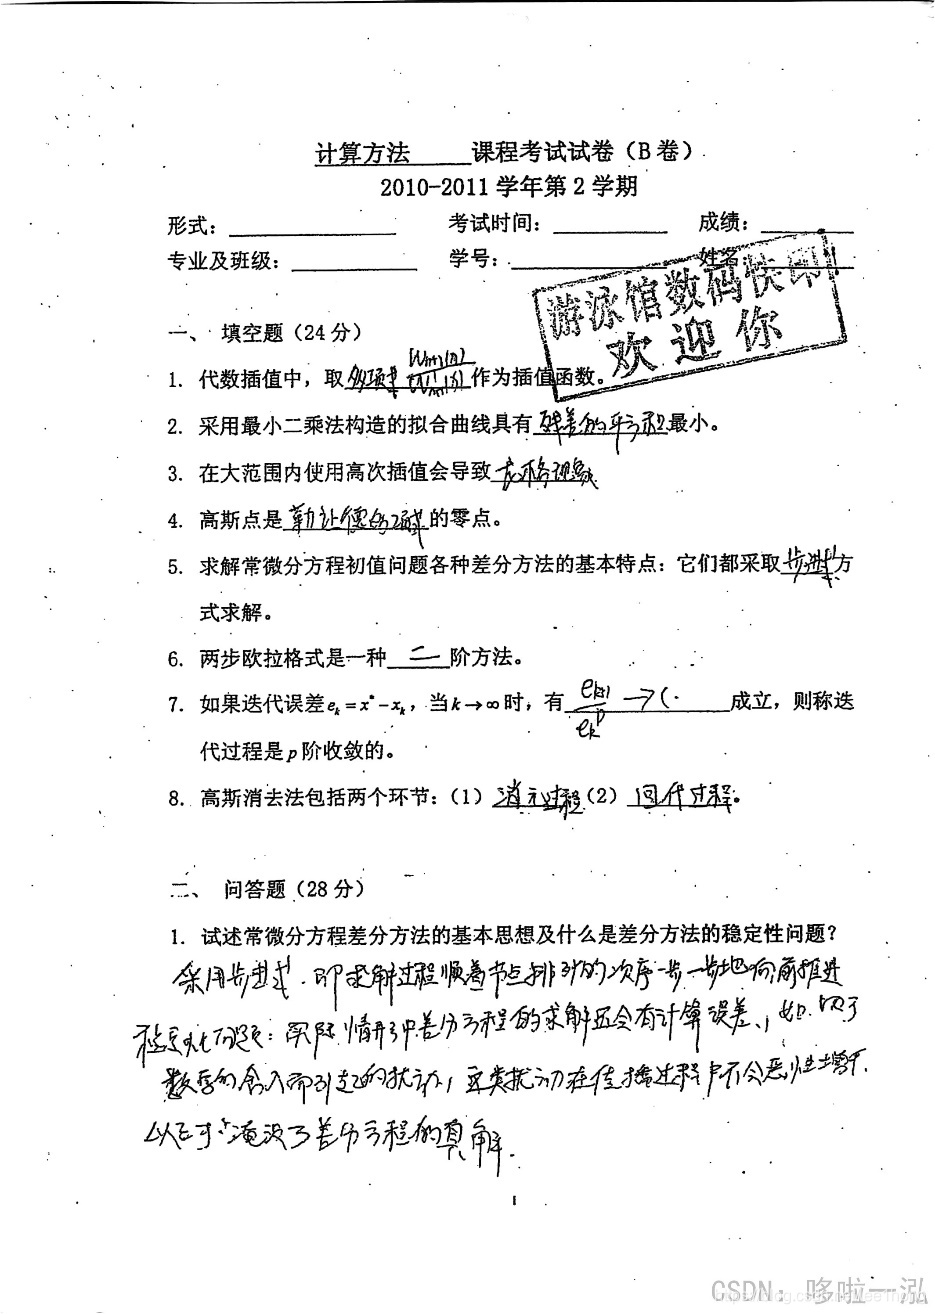 计算方法 课程考试试卷（B卷）
2010-2011学年第2学期
形式： 考试时间： 成绩：
专业及班级： 学号： 姓名
游泳馆数码快印
欢迎你
一、 填空题（24分）
1. 代数插值中，取 多项式 作为插值函数。
2. 采用最小二乘法构造的拟合曲线具有 残差的平方和 最小。
3. 在大范围内使用高次插值会导致 龙格现象
4. 高斯点是 勒让德多项式 的零点。
5. 求解常微分方程初值问题各种差分方法的基本特点：它们都采取 步进式 方
式求解。
6. 两步欧拉格式是一种 二 阶方法。
7. 如果迭代误差 e_k = x* - x_k，当 k→∞ 时，有 e_{k+1}/e_k^p → C 成立，则称迭
代过程是 p 阶收敛的。
8. 高斯消去法包括两个环节：（1） 消元过程 （2） 回代过程。
二、 问答题（28分）
1. 试述常微分方程差分方法的基本思想及什么是差分方法的稳定性问题？
采用步进式，即求解过程顺着节点排列的次序一步一步地向前推进
稳定性问题：实际情形中差分方程的求解还会有计算误差，如
数字的舍入而引起的扰动，这类扰动在传播过程中不会恶性增长
以至于淹没了差分方程的真解.
1
CSDN：哆啦一泓